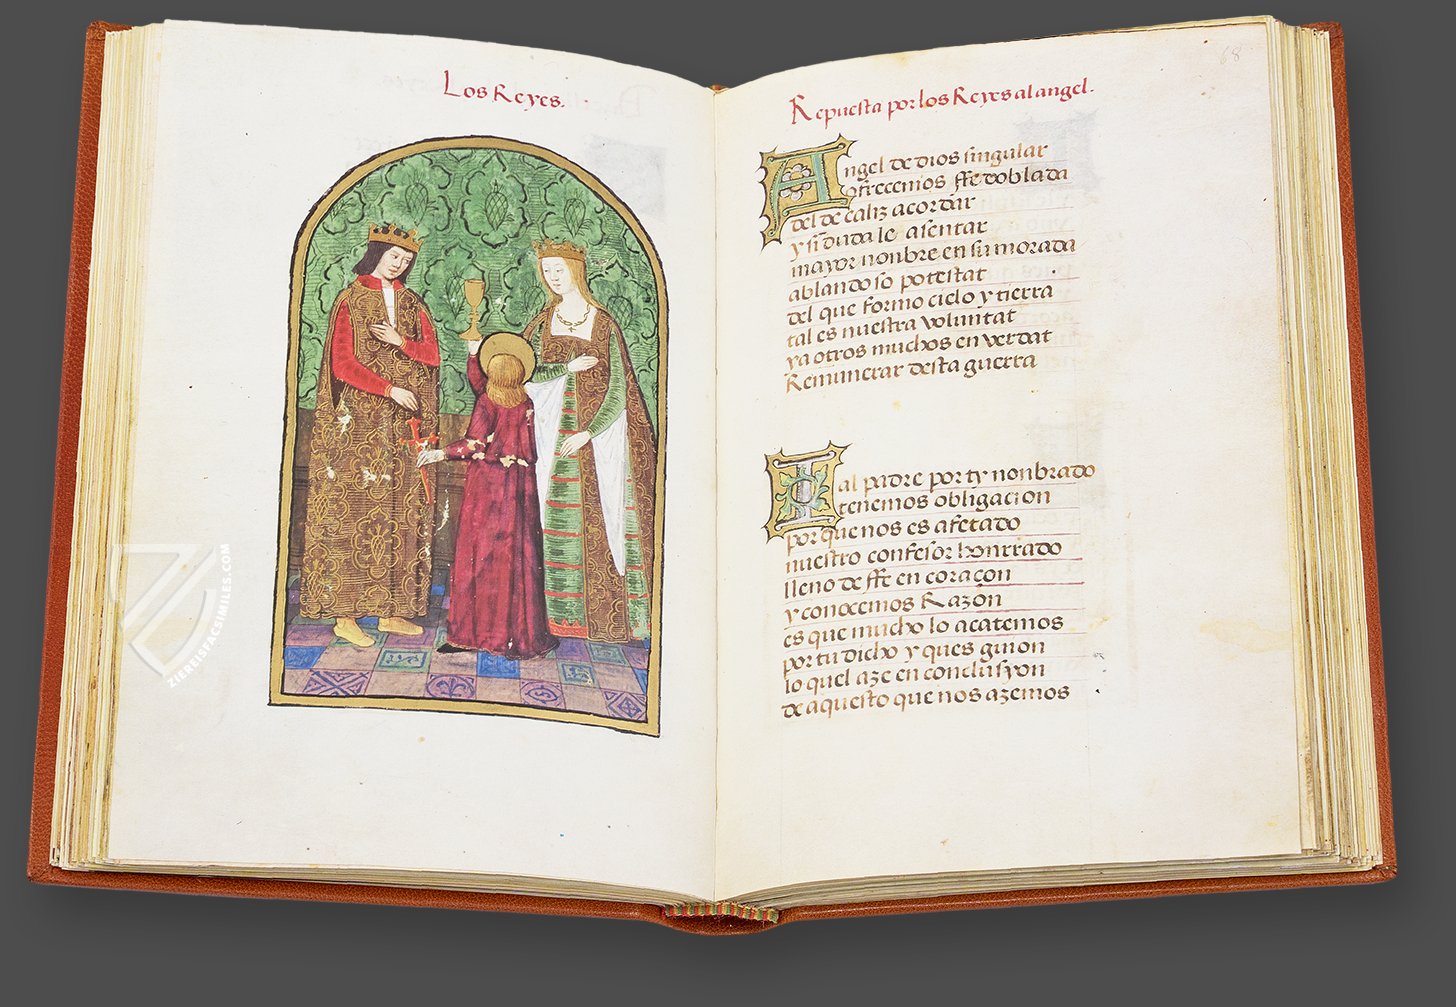 Los Reyes.
68
Repuesta por los Reyes al angel.
Angel de dios singular
ofrecemos ffe doblada
del de caliz acordar
y si duda le asentar
mayor nonbre en su morada
ablando so potestat
del que formo cielo y tierra
tal es nuestra voluntat
ya otros muchos en verdat
Remunerar desta guerra
Tal padre por ty nonbrado
tenemos obligacion
por que nos es afetado
nuestro confesor honrrado
lleno de ffe en coraçon
y conocemos Razon
es que mucho lo acatemos
por tu dicho y ques guion
lo quel aze en conclusyon
de aquesto que nos azemos
ZIEREISFACSIMILES.COM